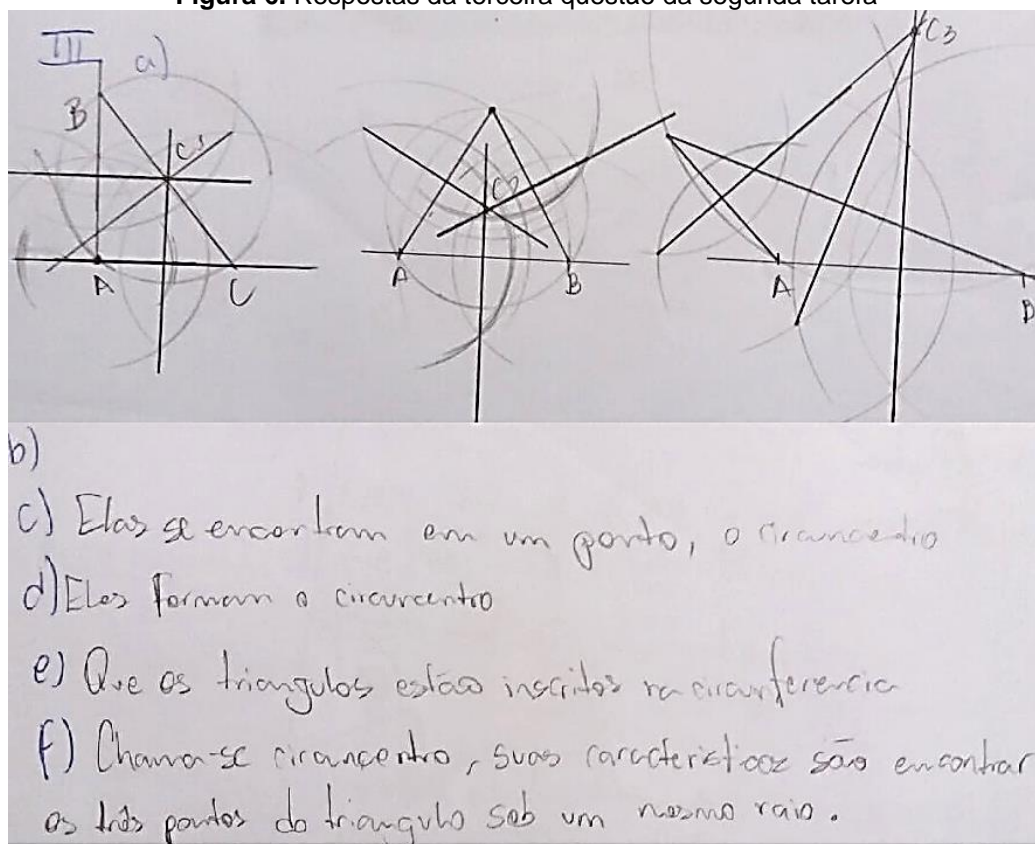 Figura 6. Respostas da terceira questão da segunda tarefa
III a)
B C1 A C
C2 A B
C3 A B
b)
c) Elas se encontram em um ponto, o circuncentro
d) Elas formam o circurcentro
e) Que os triangulos estão inscritos na circunferencia
f) Chama-se circuncentro, suas caracteristicas são encontrar
os três pontos do triangulo sob um mesmo raio.